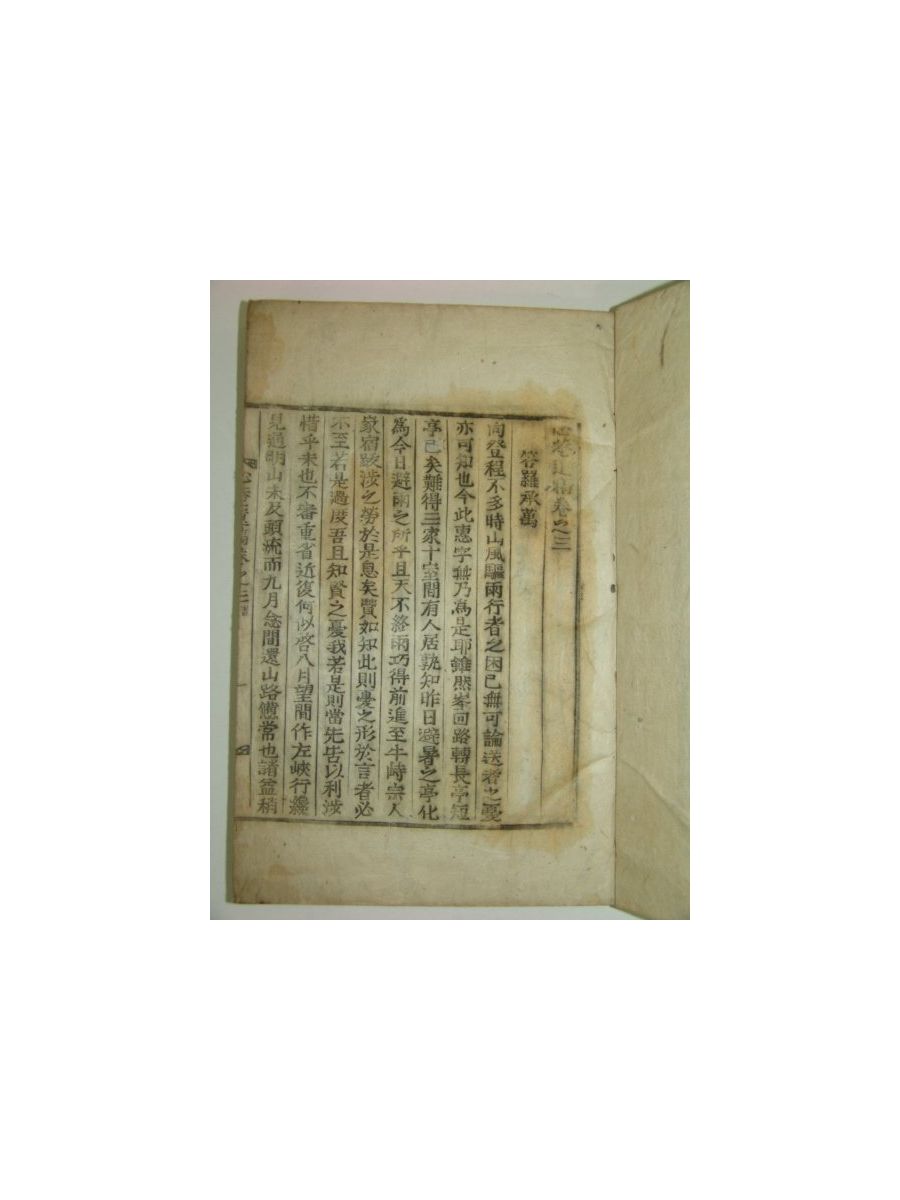 心菴遺稿卷之三
答羅承萬
向登程不多時山風驅雨行者之困已無可論送者之憂
亦可知也今此惠字無乃爲是耶雖然峯回路轉長亭短
亭已矣難得三家十室間有人居孰知昨日避暑之亭化
爲今日避雨之所乎且天不終雨巧得前進至牛峙宗人
家宿跋涉之勞於是息矣賢如知此則憂之形於言者必
不至若是過度吾且知賢之憂我若是則當先告以利涉
惜乎未也不審重省近復何似啓八月望間作左峽行纔
見通明山未及頭流而九月念間還山路憊常也諸益稍